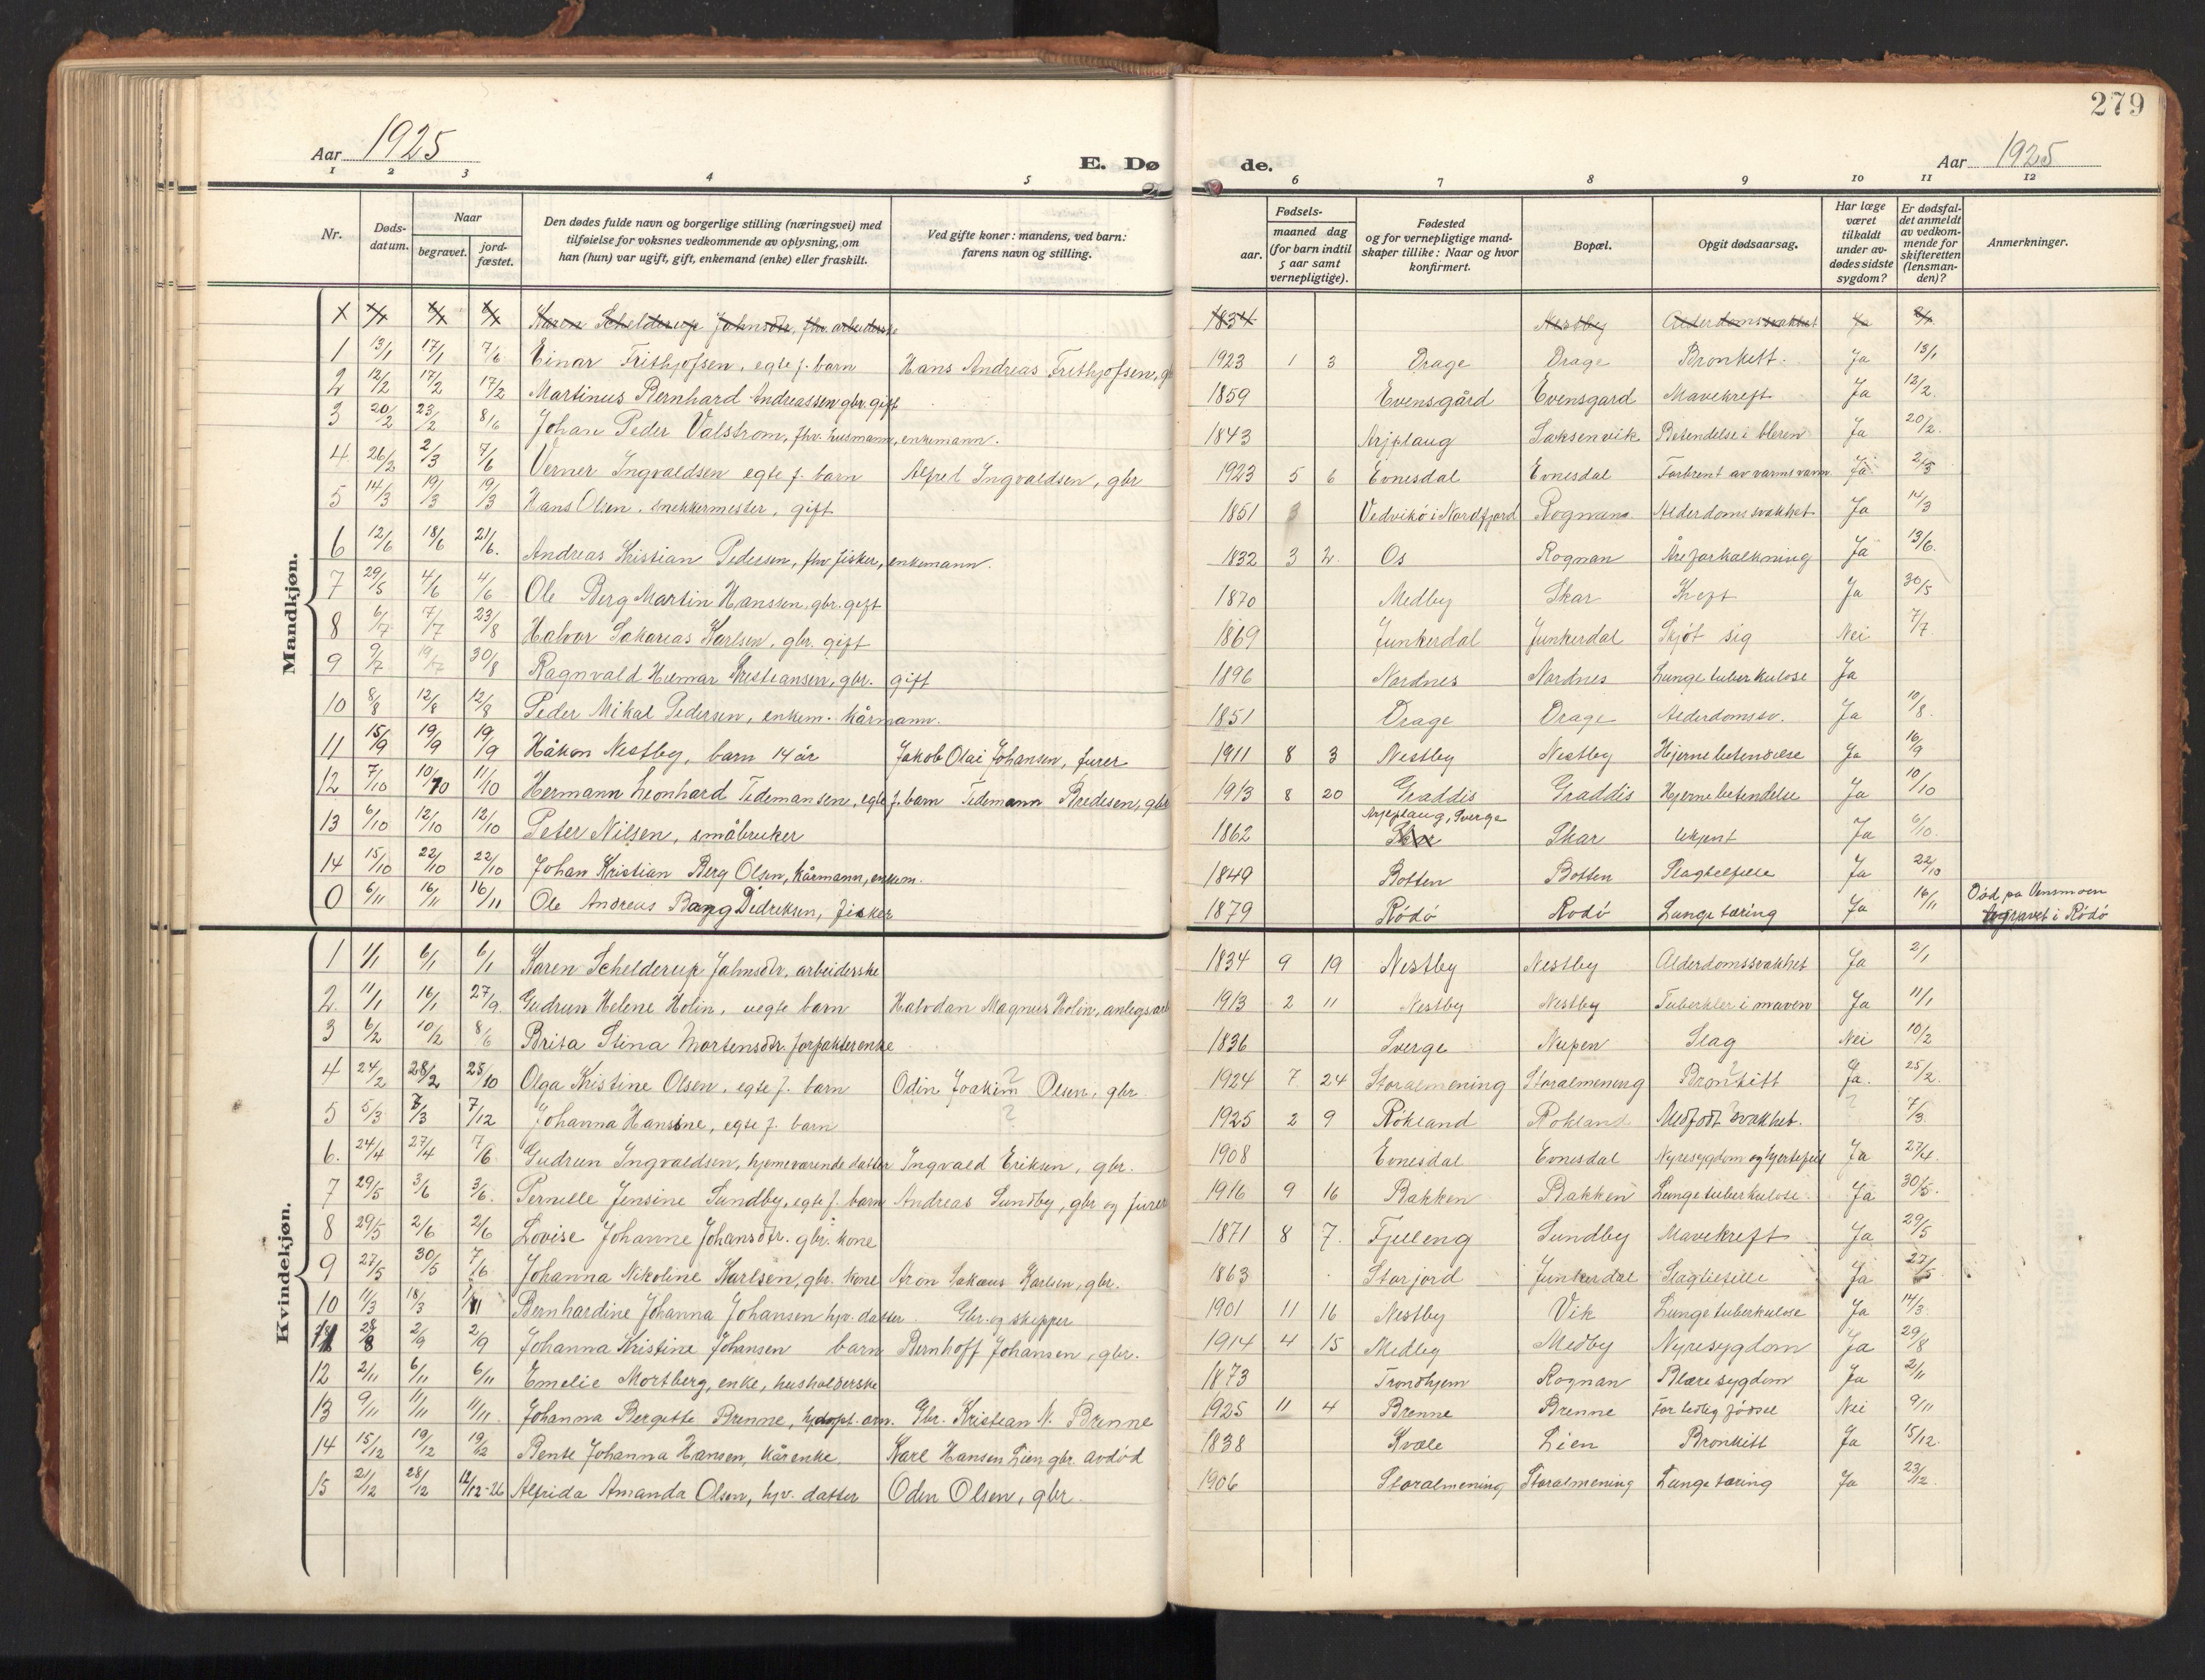 279
Aar 1925
E. Dø de.
Aar 1925
1 2 3 4 5 6 7 8 9 10 11 12
Nr.
Døds-datum.
Naar
begravet.
jord-fæstet.
Den dødes fulde navn og borgerlige stilling (næringsvei) med tilføielse for voksnes vedkommende av oplysning, om han (hun) var ugift, gift, enkemand (enke) eller fraskilt.
Ved gifte koner: mandens, ved barn: farens navn og stilling.
Fødsels-
aar.
maaned dag
(for barn indtil 5 aar samt vernepligtige).
Fødested og for vernepligtige mand-skaper tillike: Naar og hvor konfirmert.
Bopæl.
Opgit dødsaarsag.
Har læge været tilkaldt under av-dødes sidste sygdom?
Er dødsfal-det anmeldt av vedkom-mende for skifteretten (lensman-den)?
Anmerkninger.
Mandkjøn.
Karen Schelderup Jahnsdtr, fhv. arbeiderske 1834 Nestby Alderdomssvakhet Ja
1 13/1 17/1 7/6 Einar Frithjofsen, egte f. barn Hans Andreas Frithjofsen, g 1923 1 3 Drage Drage Bronkitt. Ja 13/1
2 12/2 17/2 17/2 Martinus Bernhard Andreassen gbr. gift 1859 Evensgård Evensgard Mavekreft Ja 12/2.
3 20/2 23/2 8/6 Johan Peder Valstrom, fhv. husmann, enkemann. 1843 Arjplaug Saksenvik Betendelse i bleren Ja 20/2.
4 26/2 2/3 7/6 Verner Ingvaldsen egte f. barn Alfred Ingvaldsen, gbr 1923 5 6 Evnesdal Evnesdal Forbrent av varmt vann Ja 2/3
5 14/3 19/3 19/3 Hans Olsen, snekkermester, gift 1851 Vedvikö i Nordfjord Rognan Alderdomssvakhet Ja 14/3
6 12/6 18/6 21/6. Andreas Kristian Pedersen, fhv fisker, enkemann. 1832 3 2. Os Rognan Åreforkalkning Ja 13/6.
7 29/5 4/6 4/6 Ole Berg Martin Hanssen, gbr. gift 1870 Medby Skar Kreft Ja 30/5
8 6/7 7/7 23/8 Halvor Sakarias Karlsen, gbr. gift 1869 Junkerdal Junkerdal Skjöt sig Nei 7/7.
9 9/7 19/7 30/8 Ragnvald Hilmar Kristiansen, gbr. gift 1896 Nordnes Nordnes Lungetuberkulose Ja
10 8/8 12/8 12/8 Peder Mikal Pedersen, enkem. kårmann. 1851 Drage Drage Alderdomssv. Ja 10/8.
11 15/9 19/9 19/9 Håkon Nestby, barn 14 år Jakob Olai Johansen, furer 1911 8 3 Nestby Nestby Hjernebetendelse Ja 16/9
12 7/10 10/10 11/10 Hermann Leonhard Tidemansene, egte f. barn Tidemann Bredesen, gbr 1913 8 20 Graddis Graddis Hjernebetendelse Ja 10/10
13 6/10 12/10 12/10 Peter Nilsen, småbruker 1862 Arjeplaug, Sverge Skar Skar Ukjent Ja 6/10.
14 15/10 22/10 22/10 Johan Kristian Berg Olsen, kårmann, enkem. 1849 Botten Botten Slagtilfelle Ja 22/10
0 6/11 16/11 16/11 Ole Andreas Bang Didriksen, fisker 1879 Rödö Rodö Lungetæring Ja 16/11 Död på Vensmoen
begravet i Rödö
Kvindekjøn.
1 1/1 6/1 6/1 Karen Schelderup Jahnsdtr, arbeiderske 1834 9 19 Nestby Nestby Alderdomssvakhet Ja 2/1
2. 11/1 16/1 27/9. Gudrun Helene Holin, uegte barn Halvdan Magnus Holin, anlegsarb 1913 2 11 Nestby Nestby Tuberkler i maven Ja 11/1
3 6/2 10/2 8/6 Brita Stina Mortensdtr. forpakterenke 1836 Sverge Nupen Slag Nei 10/2
4 24/2 28/2 25/10 Olga Kristine Olsen, egte f. barn Odin Joakim Olsen, gbr. 1924 7 24 Storalmening Storalmening Bronkitt Ja. 25/2.
5 5/3 8/3 7/12 Johanna Hansine, egte f. barn ? 1925 2 9 Rokland Rokland Medfödt svakhet. ? 7/3.
6. 24/4 27/4 7/6 Gudrun Ingvaldsen, hjemeværende datter Ingvald Eriksen, gbr. 1908 Evnesdal Evnesdal Nyresygdom og hjertefeil Ja 27/4.
7 29/5 3/6 3/6. Pernille Jensine Sundby, egte f. barn Andreas Sundby, gbr og furer 1916 9 16 Bakken Bakken Lungetuberkulose Ja 30/5.
8 29/5 2/6 2/6 Lovise Johanne Johansdtr. gbr. kone 1871 8 7. Fjelleng Sundby Mavekreft Ja 29/5
9 27/5 30/5 7/6 Johanna Nikoline Karlsen, gbr. kone Aron Sakæus Karlsen, gbr. 1863 Storjord Junkerdal Slagtilfelle Ja 27/5
10 11/3 18/3 1/11 Bernhardine Johanna Johansen hjv. datter Gbr. og skipper 1901 11 16 Nestby Vik Lungetuberkulose Ja 14/3.
11 28/8 2/9 2/9 Johanna Kristine Johansen barn Bernhoff Johansen, gbr. 1914 4 15 Medby Medby Nyresygdom Ja 29/8
12 2/11 6/11 6/11 Emelie Mortberg, enke, husholderske 1873 Trondhjem Rognan Blæresygdom Ja 2/11
13 9/11 11/11 11/11. Johanna Bergitte Brenne, hjdöpt. Gbr. Kristian N. Brenne 1925 11 4 Brenne Brenne For tidlig födsel Nei 9/11
14 15/12 19/12 19/12 Bente Johanna Hansen, kårenke. Karl Hansen Lien gbr. avdöd 1838 Kvæle Lien Bronkitt Ja 15/12.
15 21/12 28/12 12/12-26 Alfrida Amanda Olsen, hjv. datter Odin Olsen, gbr. 1906 Storalmening Storalmening Lungetæring Ja 23/12.